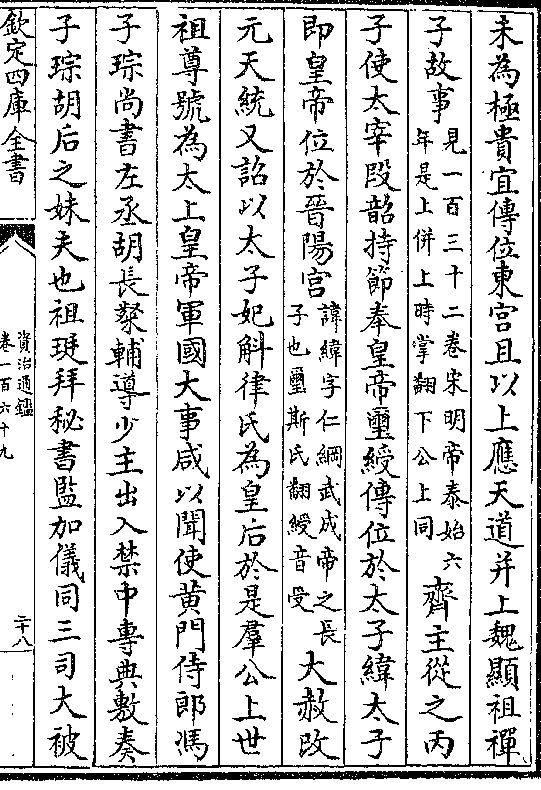 未為極貴宜傳位東宮且以上應天道并上魏顯祖禪
子故事見一百三十二卷宋明帝泰始六年是上併上時掌翻下公上同齊主從之丙
子使太宰段韶持節奉皇帝璽綬傳位於太子緯太子
即皇帝位於晉陽宮諱緯字仁綱武成帝之長子也璽斯氏翻綬音受大赦改
元天統又詔以太子妃斛律氏為皇后於是羣公上世
祖尊號為太上皇帝軍國大事咸以聞使黃門侍郎馮
子琮尚書左丞胡長粲輔導少主出入禁中專典敷奏
子琮胡后之妹夫也祖珽拜秘書監加儀同三司大被
欽定四庫全書
資治通鑑
卷一百六十九
二十八